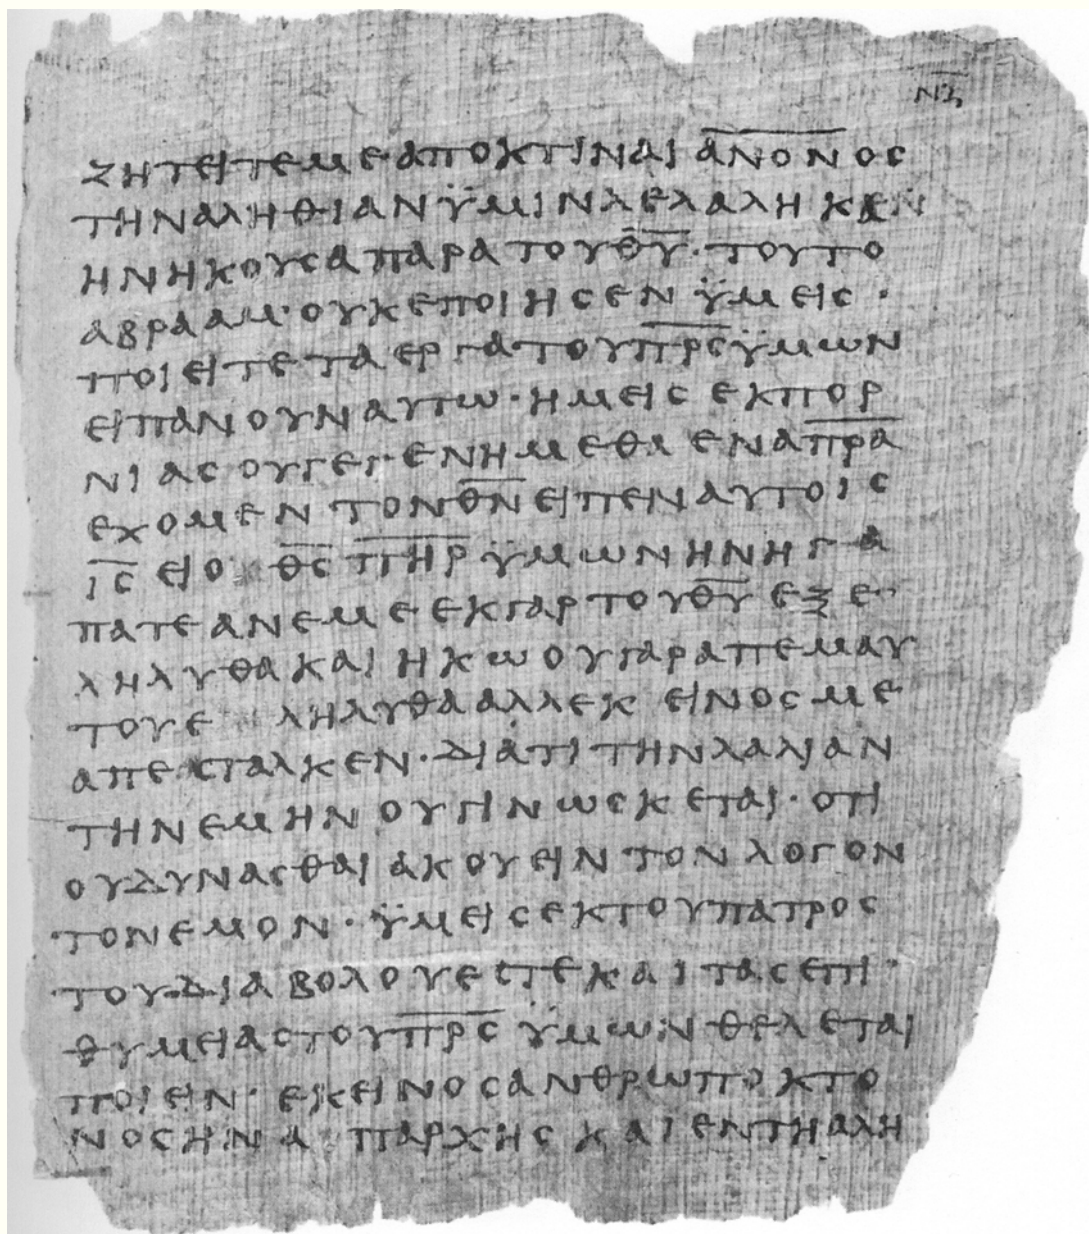 Ν̅Ζ̅
ΖΗΤΕΙΤΕΜΕΑΠΟΚΤΙΝΑΙΑ̅Ν̅Ο̅Ν̅ΟϹ
ΤΗΝΑΛΗΘΙΑΝΫΜΙΝΛΕΛΑΛΗΚΕΝ
ΗΝΗΚΟΥϹΑΠΑΡΑΤΟΥΘ̅Υ̅·ΤΟΥΤΟ
ΑΒΡΑΑΜ·ΟΥΚΕΠΟΙΗϹΕΝΫΜΕΙϹ·
ΠΟΙΕΙΤΕΤΑΕΡΓΑΤΟΥΠ̅Ρ̅Ϲ̅ΫΜΩΝ
ΕΙΠΑΝΟΥΝΑΥΤΩ·ΗΜΕΙϹΕΚΠΟΡ
ΝΙΑϹΟΥΓΕΓΕΝΗΜΕΘΑΕΝΑΠ̅Ρ̅Α̅
ΕΧΟΜΕΝΤΟΝΘ̅Ν̅ΕΙΠΕΝΑΥΤΟΙϹ
Ι̅Ϲ̅ΕΙΟΘ̅Ϲ̅Π̅Η̅Ρ̅ΫΜΩΝΗΝΗΓΑ
ΠΑΤΕΑΝΕΜΕΕΚΓΑΡΤΟΥΘ̅Υ̅ΕΞΕ
ΛΗΛΥΘΑΚΑΙΗΚΩΟΥΓΑΡΑΠΕΜΑΥ
ΤΟΥΕΛΗΛΥΘΑΑΛΛΕΚΕΙΝΟϹΜΕ
ΑΠΕϹΤΑΛΚΕΝ·ΔΙΑΤΙΤΗΝΛΑΛΙΑΝ
ΤΗΝΕΜΗΝΟΥΓΙΝΩϹΚΕΤΑΙ·ΟΤΙ
ΟΥΔΥΝΑϹΘΑΙΑΚΟΥΕΙΝΤΟΝΛΟΓΟΝ
ΤΟΝΕΜΟΝ·ΫΜΕΙϹΕΚΤΟΥΠΑΤΡΟϹ
ΤΟΥΔΙΑΒΟΛΟΥΕϹΤΕΚΑΙΤΑϹΕΠΙ
ΘΥΜΕΙΑϹΤΟΥΠ̅Ρ̅Ϲ̅ΫΜΩΝΘΕΛΕΤΑΙ
ΠΟΙΕΙΝ·ΕΚΕΙΝΟϹΑΝΘΡΩΠΟΚΤΟ
ΝΟϹΗΝΑΠΑΡΧΗϹΚΑΙΕΝΤΗΑΛΗ